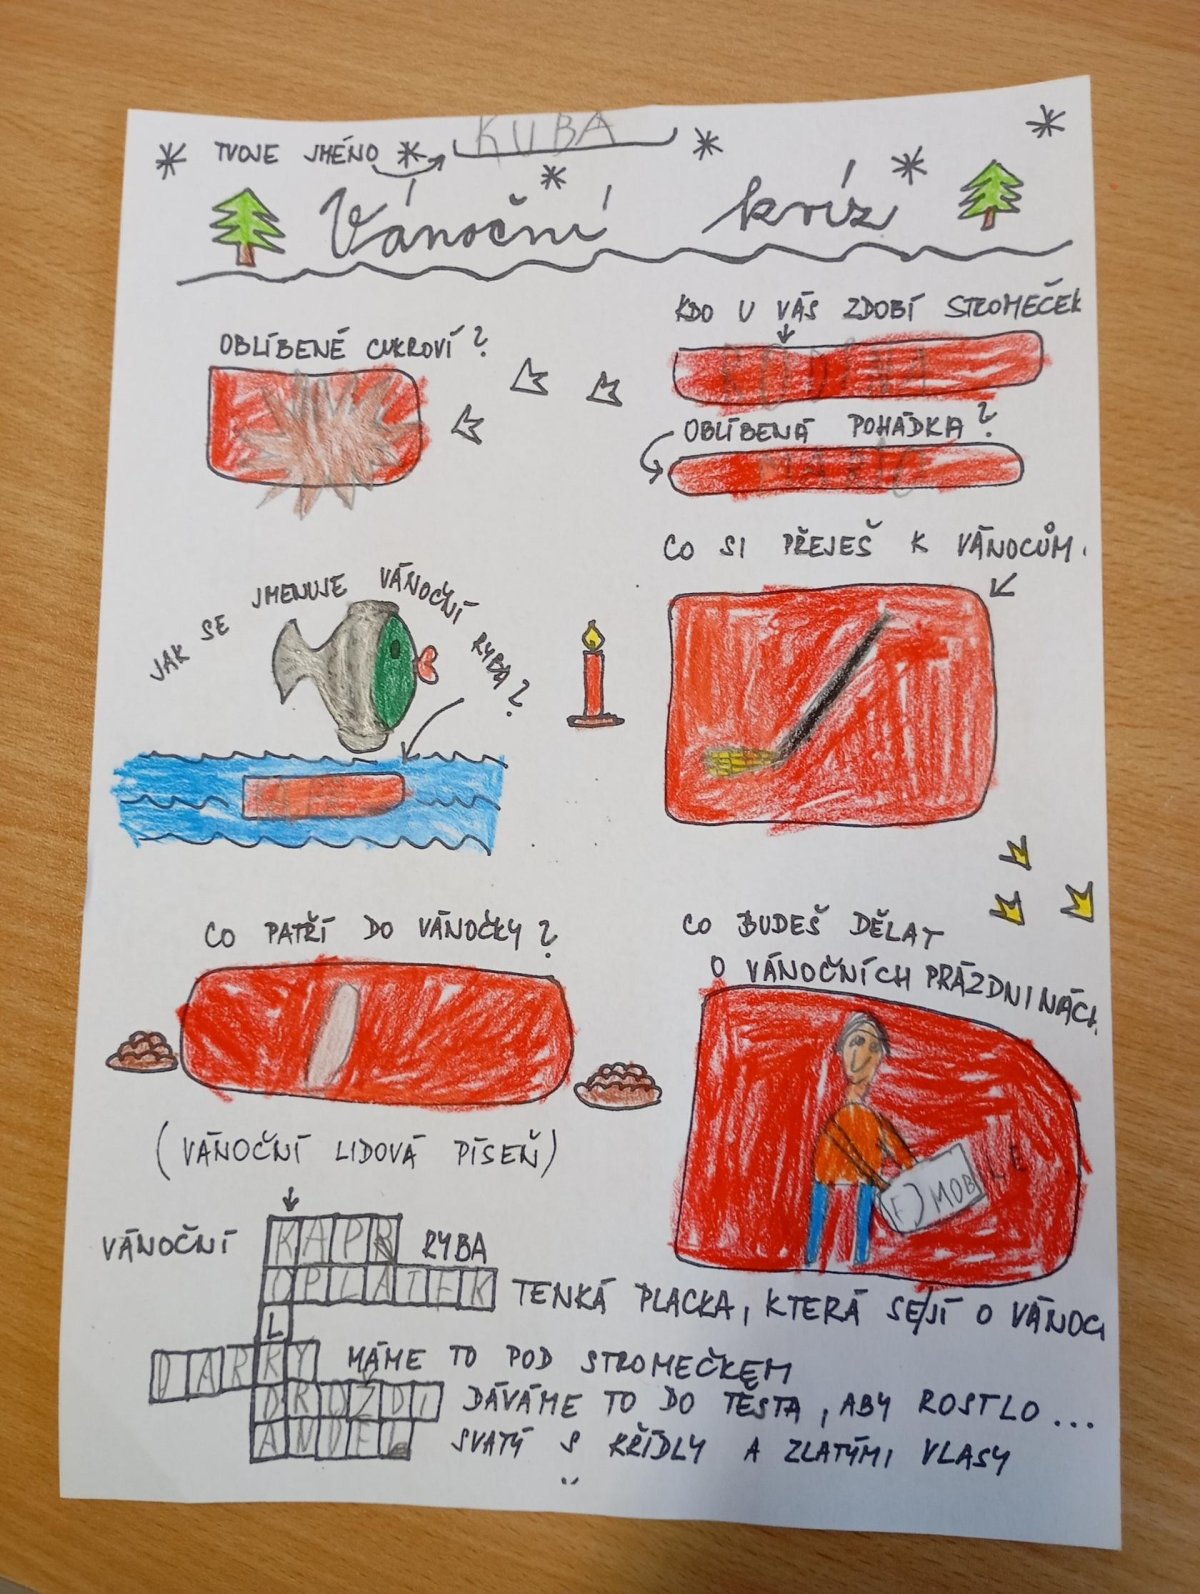 TVOJE JMÉNO KUBA
Vánoční kvíz
KDO U VÁS ZDOBÍ STROMEČEK
RODINA
OBLÍBENÉ CUKROVÍ?
OBLÍBENÁ POHÁDKA?
MARIO
CO SI PŘEJEŠ K VÁNOCŮM.
JAK SE JMENUJE VÁNOČNÍ RYBA?
CO PATŘÍ DO VÁNOČKY?
CO BUDEŠ DĚLAT
O VÁNOČNÍCH PRÁZDNINÁCH
MOBLE
(VÁNOČNÍ LIDOVÁ PÍSEŇ)
VÁNOČNÍ KAPR RYBA
OPLATEK TENKÁ PLACKA, KTERÁ SE JÍ O VÁNOC
L
DARKY MÁME TO POD STROMEČKEM
DROŽDI DÁVÁME TO DO TĚSTA, ABY ROSTLO...
ANDEL SVATÝ S KŘÍDLY A ZLATÝMI VLASY